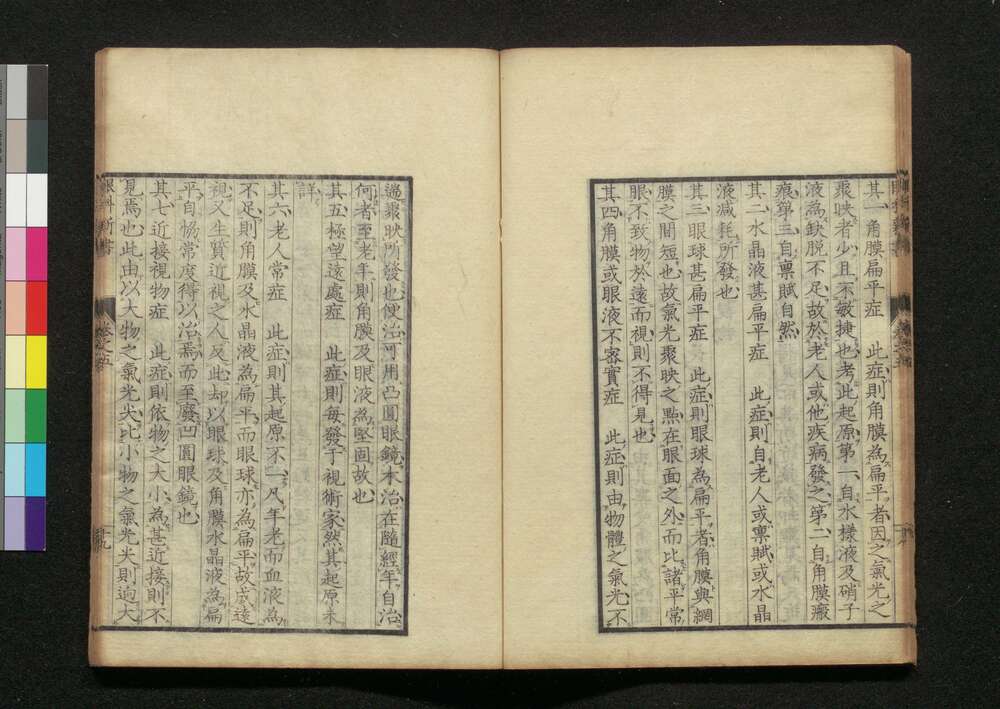 其一角膜扁平症　此症則角膜為扁平者因之氣光之
聚映者少且不敏捷也考此起原第一自水樣液及硝子
液為缺脫不足故於老人或他疾病發之第二自角膜瘢
痕第三自稟賦自然
其二水晶液甚扁平症　此症則自老人或稟賦或水晶
液減耗所發也
其三眼球甚扁平症　此症則眼球為扁平者角膜與網
膜之間短也故氣光聚映之點在眼面之外而比諸平常
眼不致物於遠而視則不得見也
其四角膜或眼液不密實症　此症則由物體之氣光不
適聚映所發也使治可用凸圓眼鏡本治在隨經年自治
何者至老年則角膜及眼液為堅固故也
其五極望遠處症　此症則每發于視術家然其起原未
詳
其六老人常症　此症則其起原不一凡年老而血液為
不足則角膜及水晶液為扁平而眼球亦為扁平故成遠
視又生質近視之人反此却以眼球及角膜水晶液為扁
平自協常度得以治焉而至廢凹圓眼鏡也
其七近接視物症　此症則依物之大小為甚近接則不
見焉也此由以大物之氣光尖比小物之氣光尖則過大
眼科新書
卷之五
十九